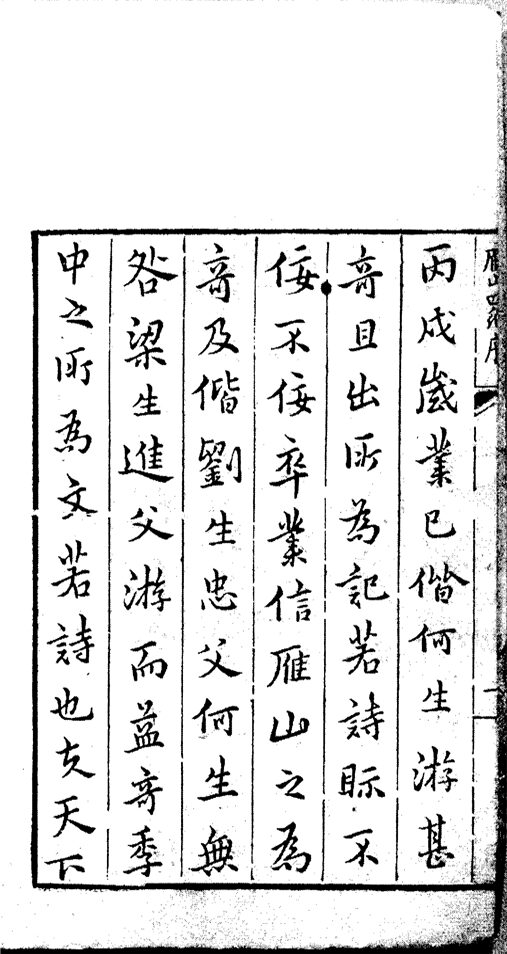 丙戌歲業已偕何生游甚
竒且出所為記若詩眎不
佞不佞卒業信雁山之為
竒及偕劉生忠父何生無
咎梁生進父游而益竒季
中之所為文若詩也夫天下